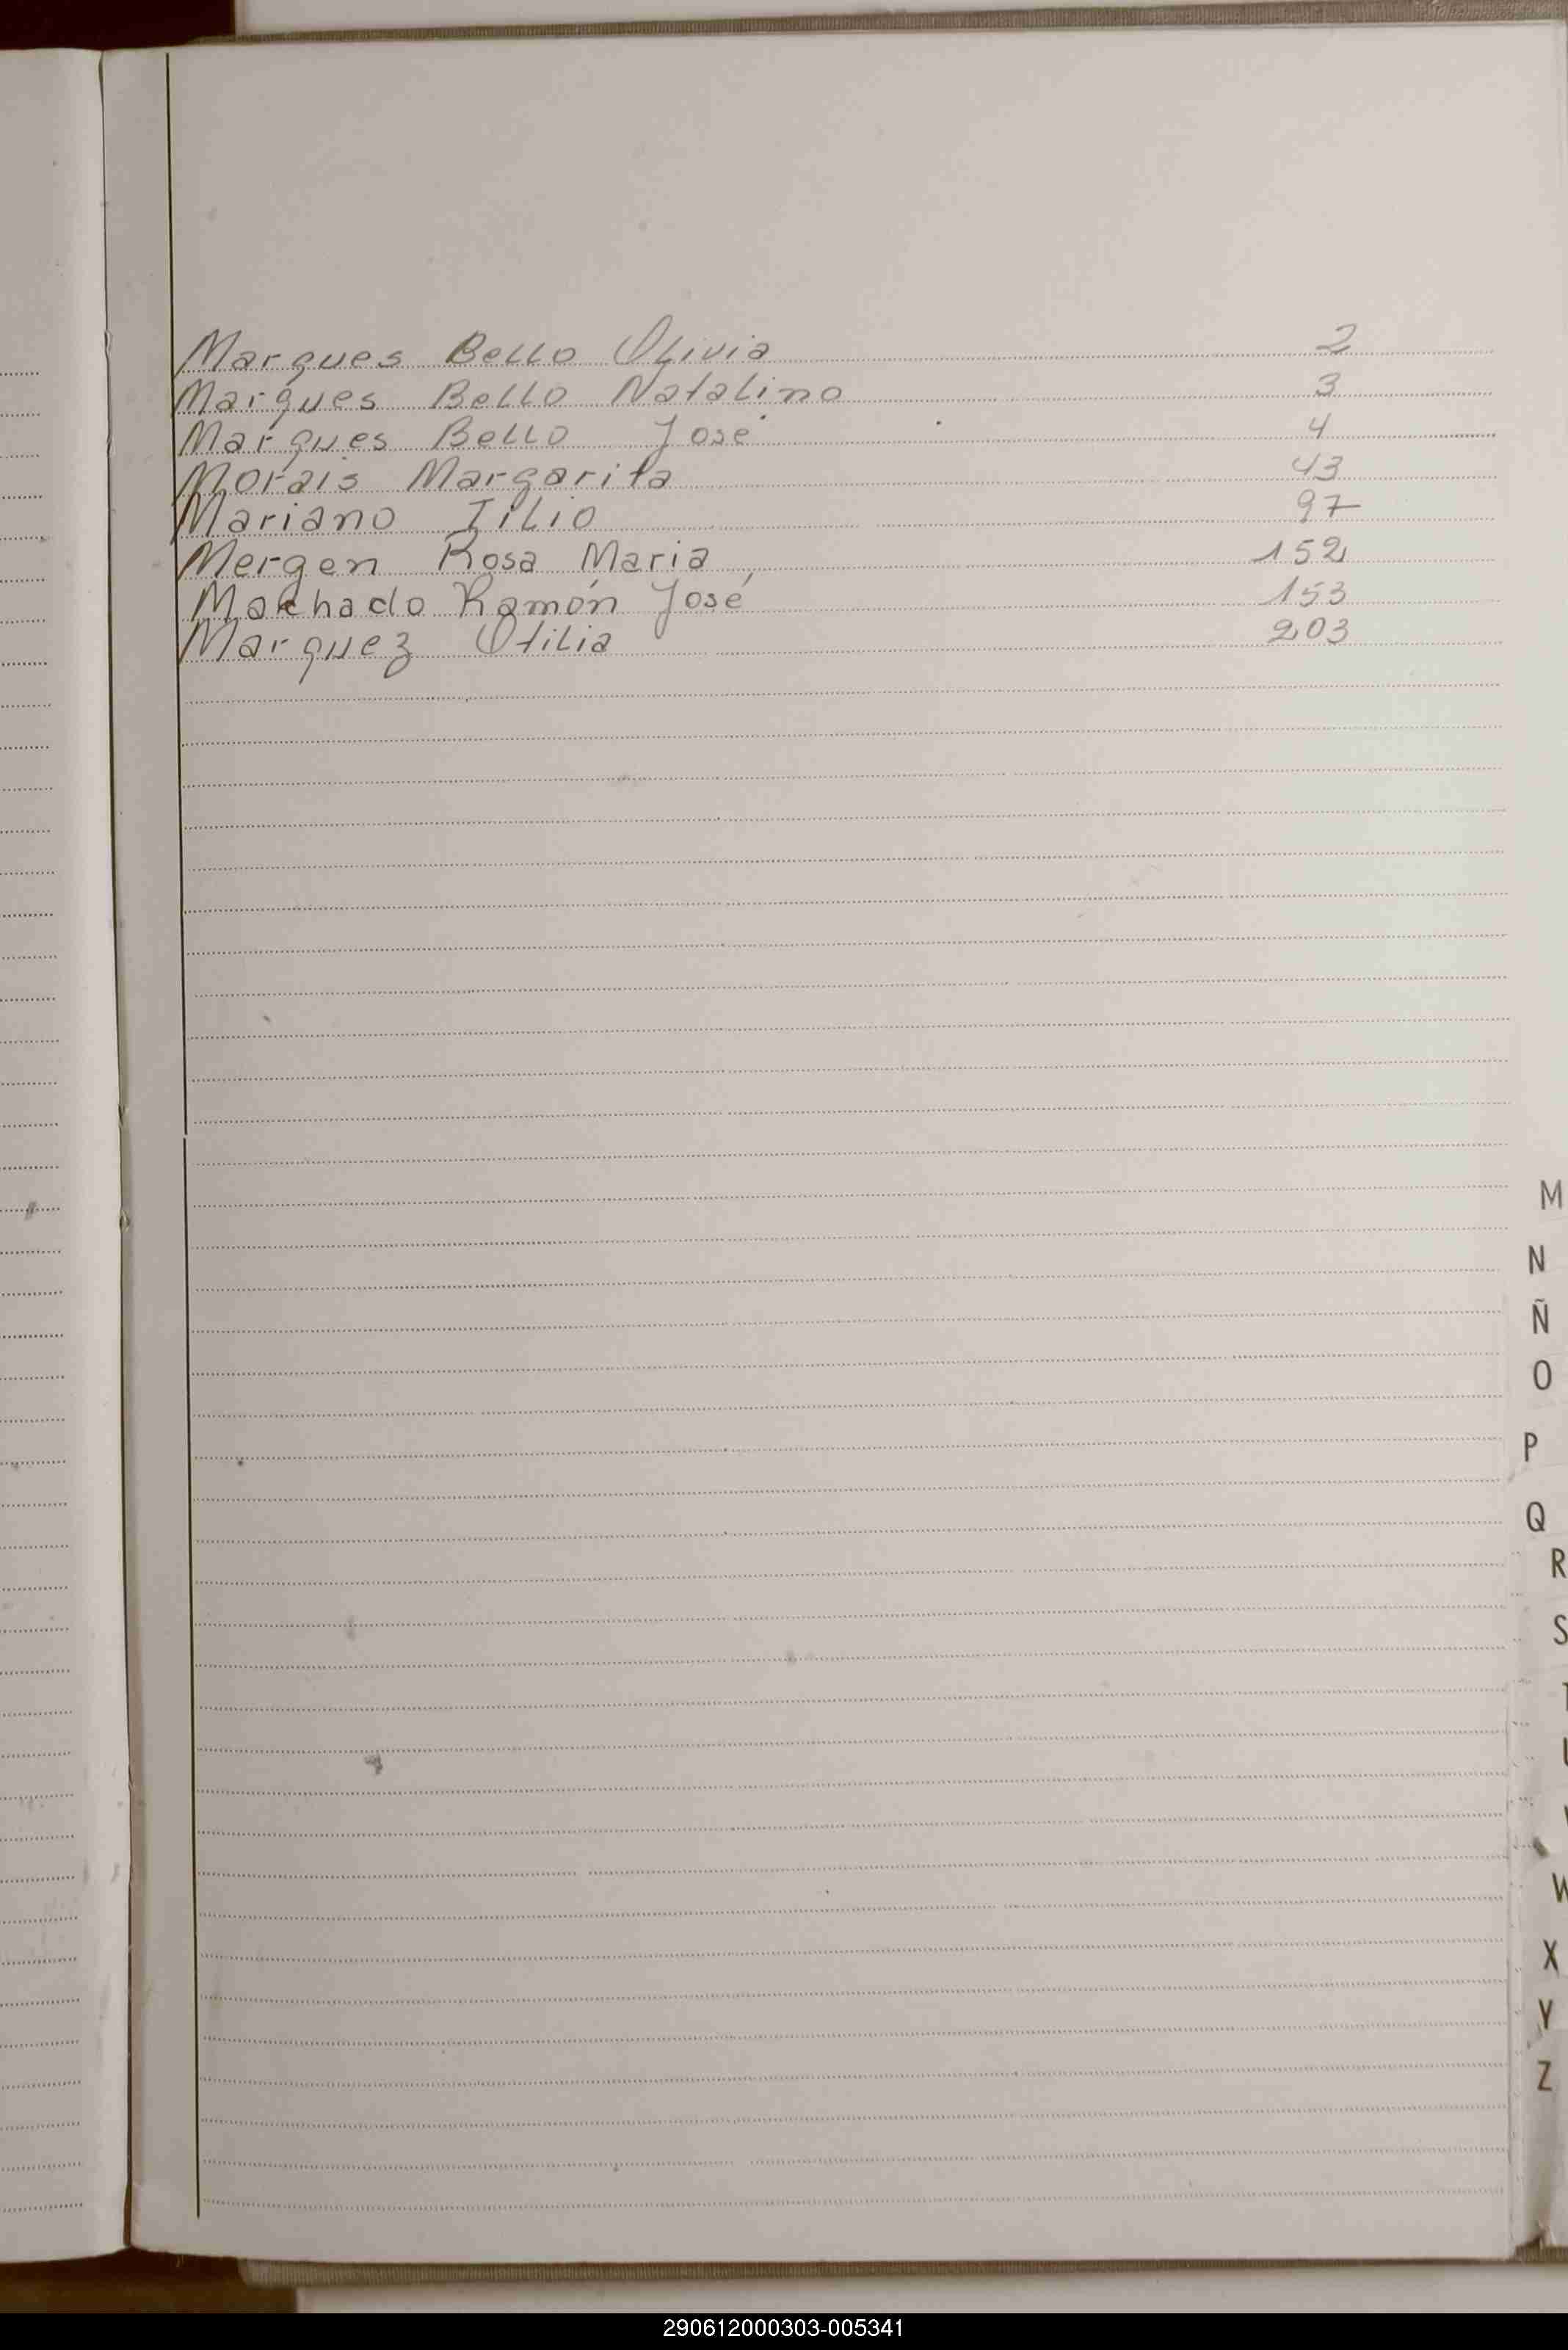 Marques Bello Olivia 2
Marques Bello Natalino 3
Marques Bello José 4
Morais Margarita 43
Mariano Tilio 97
Mergen Rosa Maria 152
Machado Ramón José 153
Marquez Otilia 203
M
N
Ñ
O
P
Q
R
S
T
U
V
W
X
Y
Z
290612000303-005341